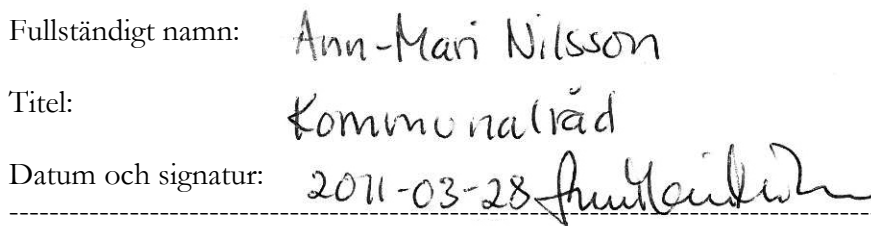 Fullständigt namn: Ann-Mari Nilsson
Titel: Kommunalråd
Datum och signatur: 2011-03-28